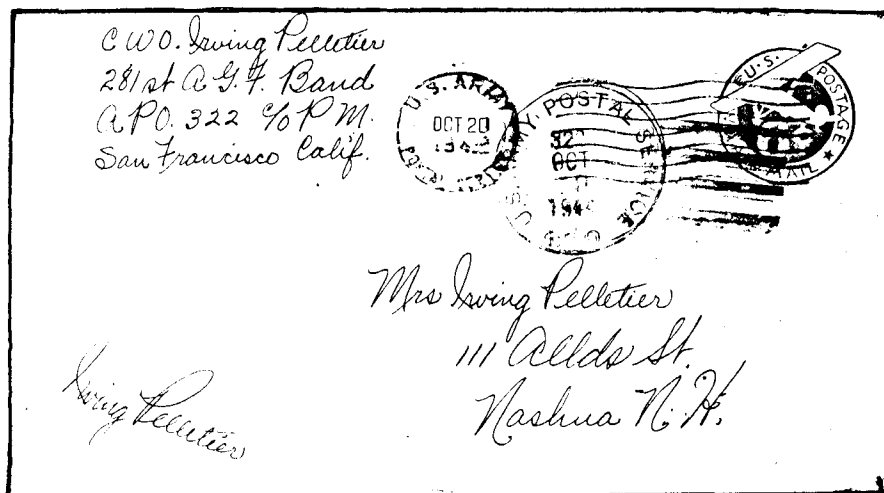 C W O. Irving Pelletier
281st A.G.F. Band
A.P.O. 322 c/o P.M.
San Francisco Calif.
U.S. ARMY
OCT 20
U.S. ARMY POSTAL SERVICE
OCT
194
U.S. POSTAGE
MAIL
Mrs Irving Pelletier
111 Allds St.
Nashua N. H.
Irving Pelletier